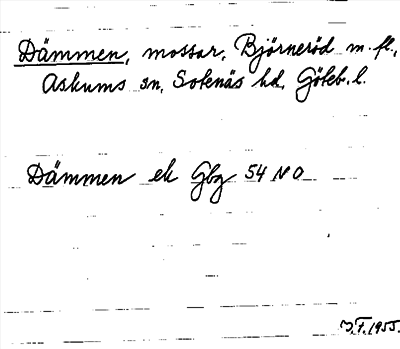 Dämmen, mossar, Björneröd m. fl.,
Askums sn, Sotenäs hd, Göteb. l.
Dämmen ek Gbg 54 NO
1955.